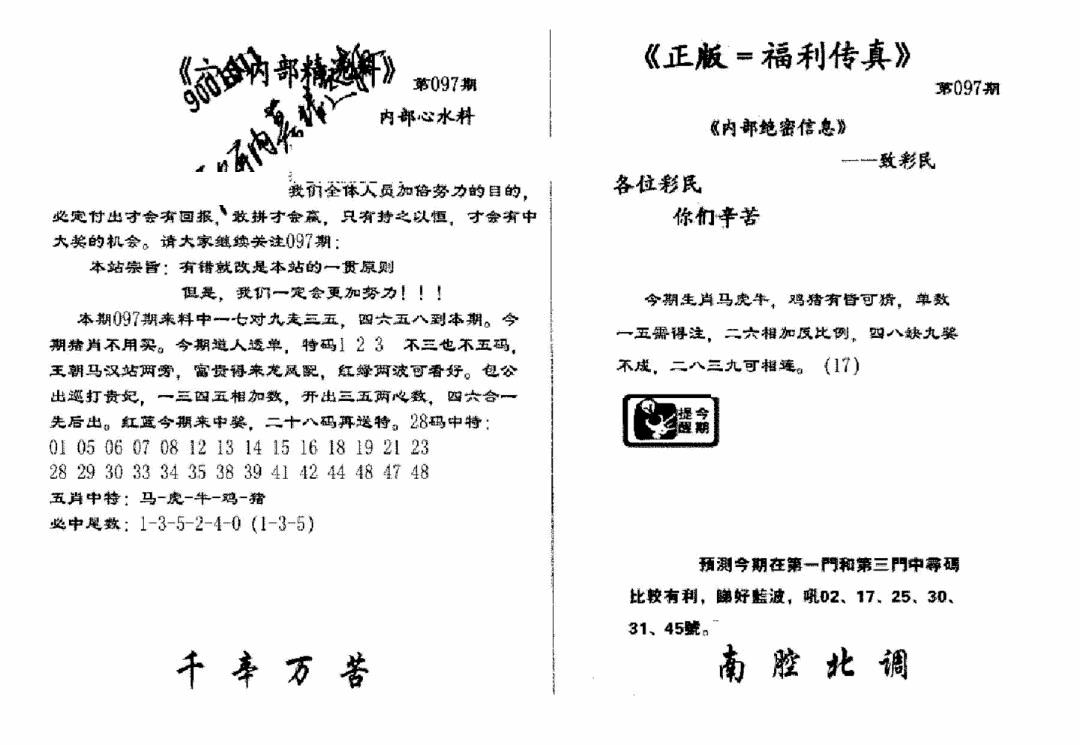 内部精选料》
第097期
内部心水料
我们全体人员加倍努力的目的，
必定付出才会有回报，敢拼才会赢，只有持之以恒，才会有中
大奖的机会。请大家继续关注097期：
本站宗旨：有错就改是本站的一贯原则
但是，我们一定会更加努力！！！
本期097期来料中一七对九走三五，四六五八到本期。今
期猪肖不用买。今期道人透单，特码1 2 3 不三也不五码，
王朝马汉站两旁，富贵得来龙凤配，红绿两波可看好。包公
出巡打贵妃，一三四五相加数，开出三五两心数，四六合一
先后出。红蓝今期来中奖，二十八码再送特。28码中特：
01 05 06 07 08 12 13 14 15 16 18 19 21 23
28 29 30 33 34 35 38 39 41 42 44 48 47 48
五肖中特：马-虎-牛-鸡-猪
必中尾数：1-3-5-2-4-0（1-3-5）
千辛万苦
《正版=福利传真》
第097期
《内部绝密信息》
——致彩民
各位彩民
你们辛苦
今期生肖马虎牛，鸡猪有皆可猜，单数
一五需得注，二六相加反比例，四八缺九奖
不成，二八三九可相连。(17)
今期
提醒
預測今期在第一門和第三門中尋碼
比較有利，睇好藍波，吼02、17、25、30、
31、45號。
南腔北调